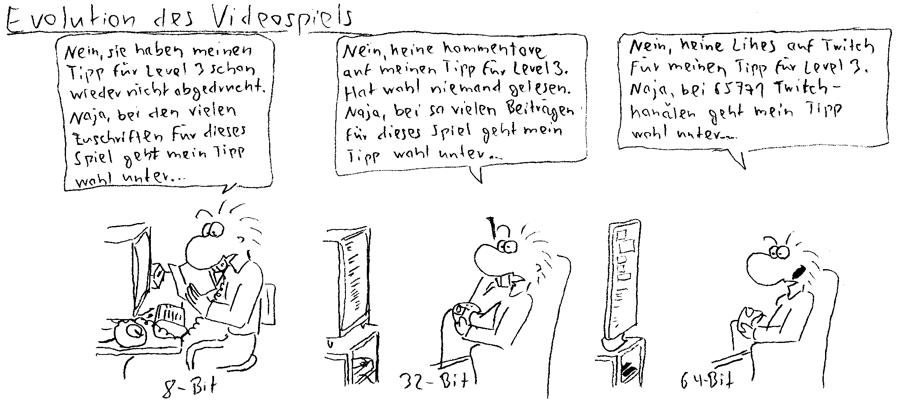 Evolution des Videospiels
Nein, sie haben meinen
Tipp für Level 3 schon
wieder nicht abgedruckt.
Naja, bei den vielen
Zuschriften für dieses
Spiel geht mein Tipp
wohl unter...
Nein, keine Kommentare
auf meinen Tipp für Level 3.
Hat wohl niemand gelesen.
Naja, bei so vielen Beiträgen
für dieses Spiel geht mein
Tipp wohl unter...
Nein, keine Likes auf Twitch
für meinen Tipp für Level 3.
Naja, bei 65771 Twitch-
kanälen geht mein Tipp
wohl unter...
8-Bit
32-Bit
64-Bit